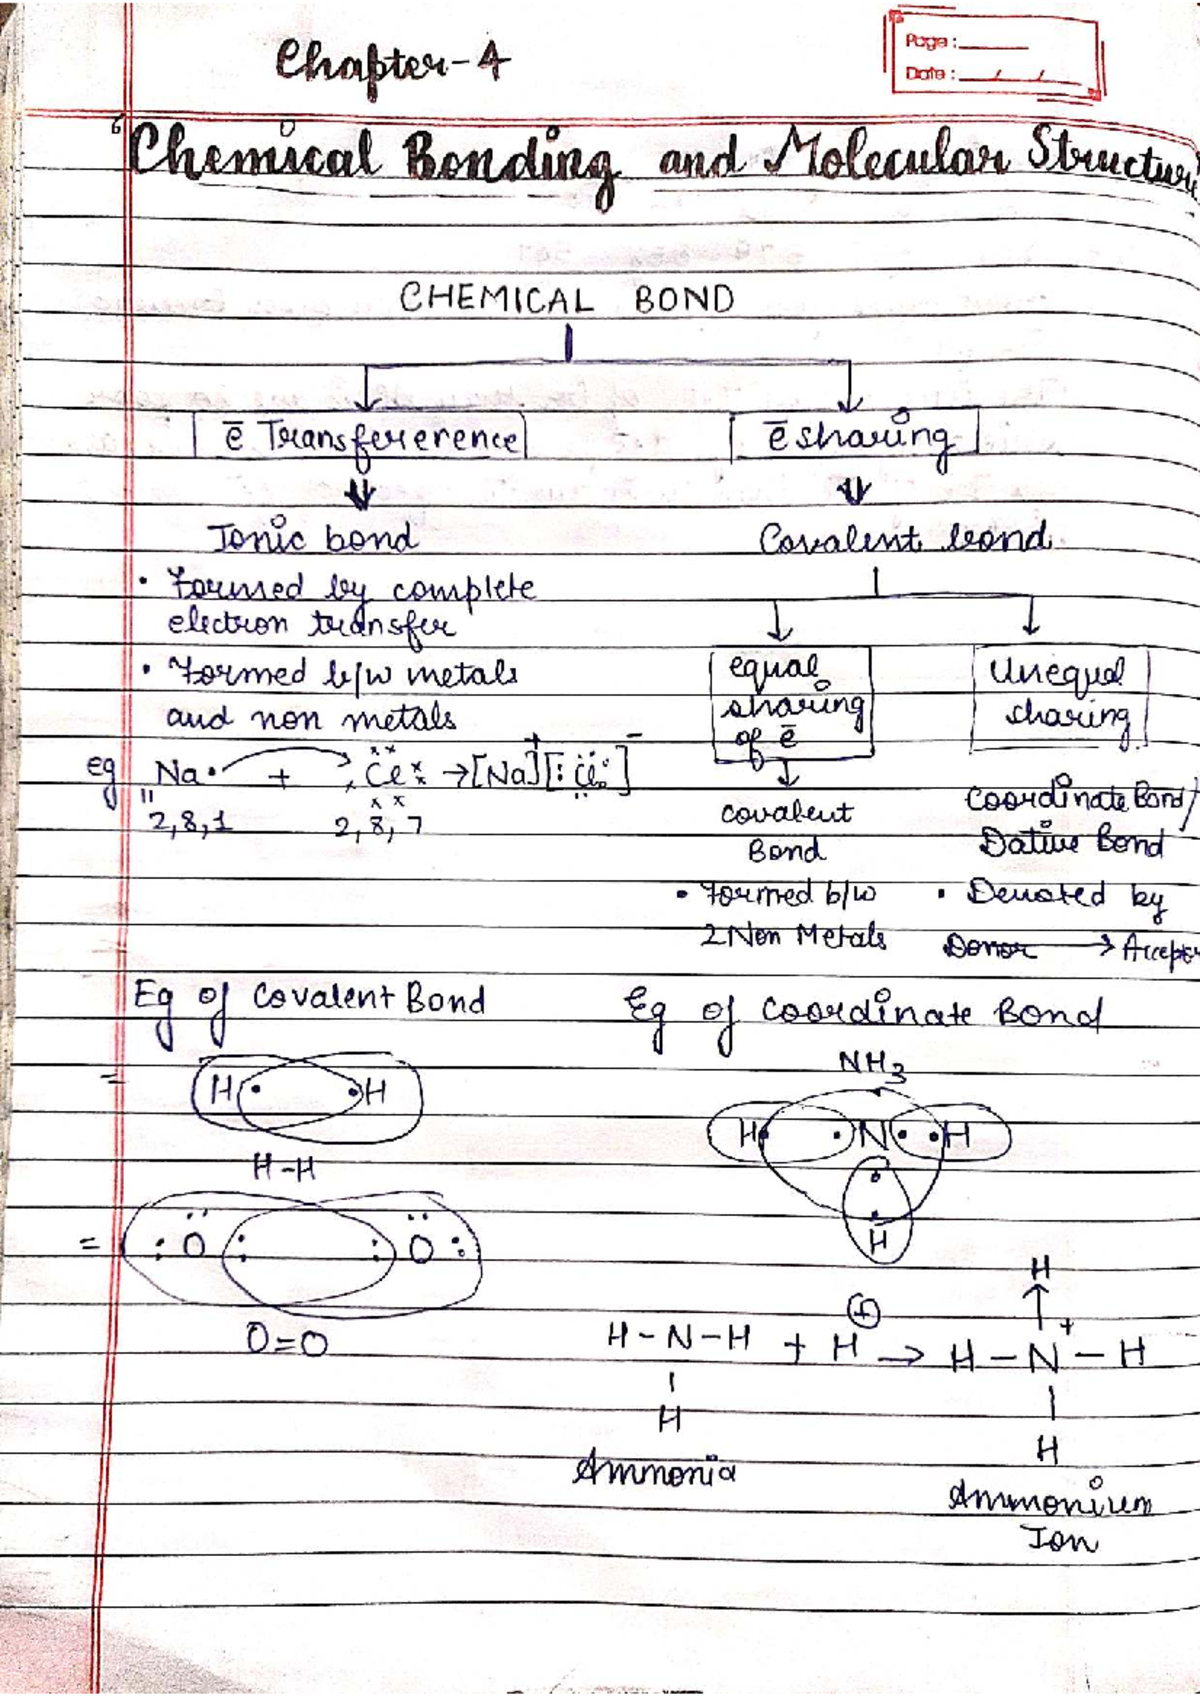 Chapter-4
Page :
Date : / /
"Chemical Bonding and Molecular Structure
CHEMICAL BOND
ē Transfererence
ē sharing
Ionic bond
Covalent bond
• Formed by complete
electron transfer
• Formed b/w metals
and non metals
eg Na• + Cl → [Na]+ [:Cl:]−
2,8,1 2,8,7
equal
sharing
of ē
Unequal
sharing
covalent
Bond
Coordinate Bond/
Dative Bond
• Formed b/w
2 Non Metals
• Denoted by
Donor → Accepor
Eg of Covalent Bond
Eg of Coordinate Bond
= H• •H
H-H
= :O: :O:
O=O
NH3
H• •N• •H
H
H-N-H + H⊕ → H-N+-H
H
H
H
Ammonia
Ammonium
Ion